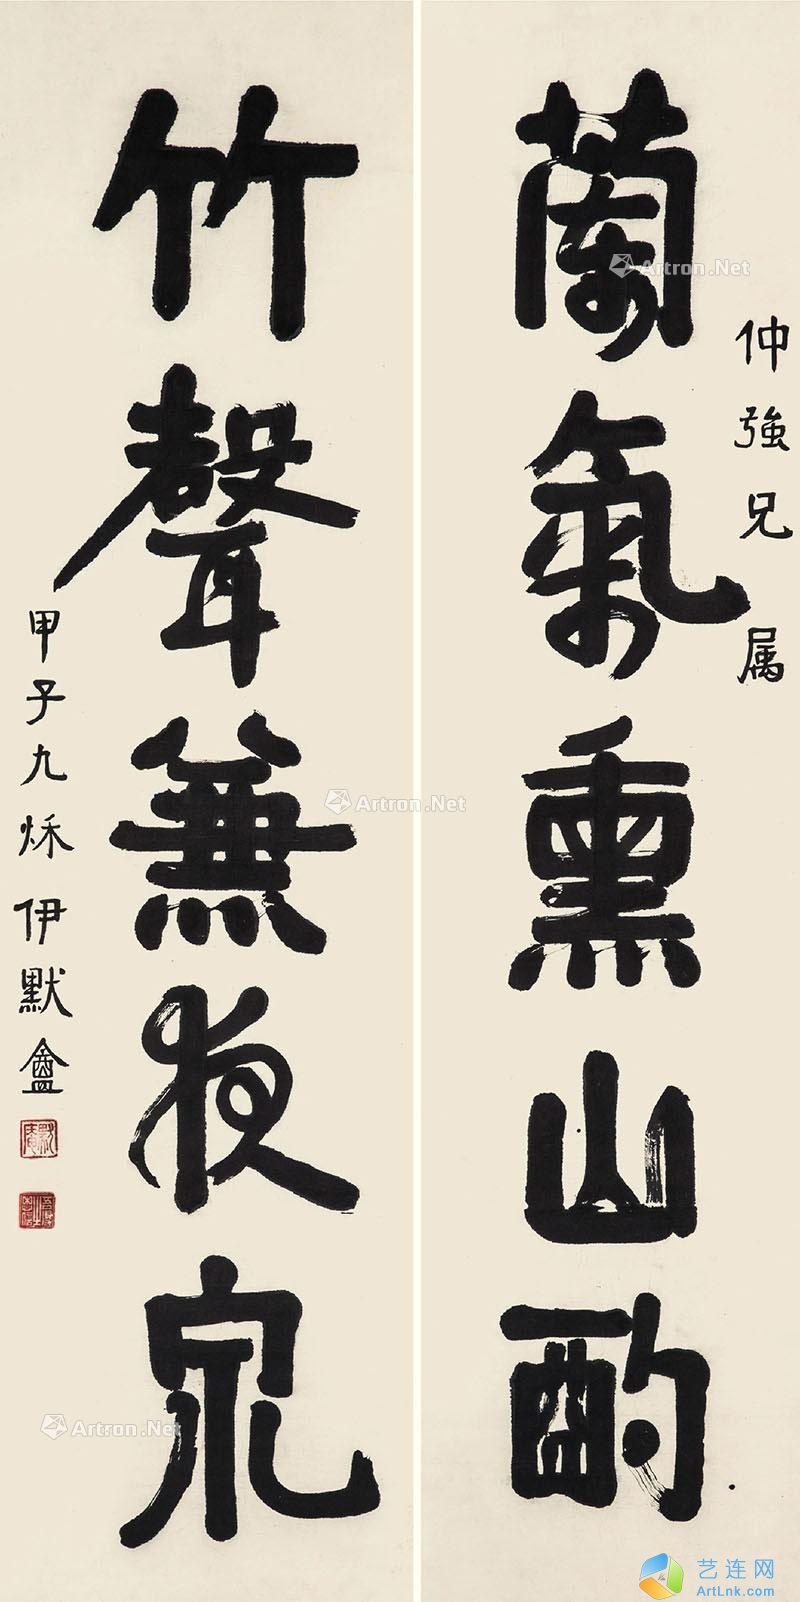 仲強兄 属
蘭氣熏山酌
竹聲兼夜泉
甲子九秌 伊默盦
Artron.Net
Artron.Net
Artron.Net
艺连网
ArtLnk.com